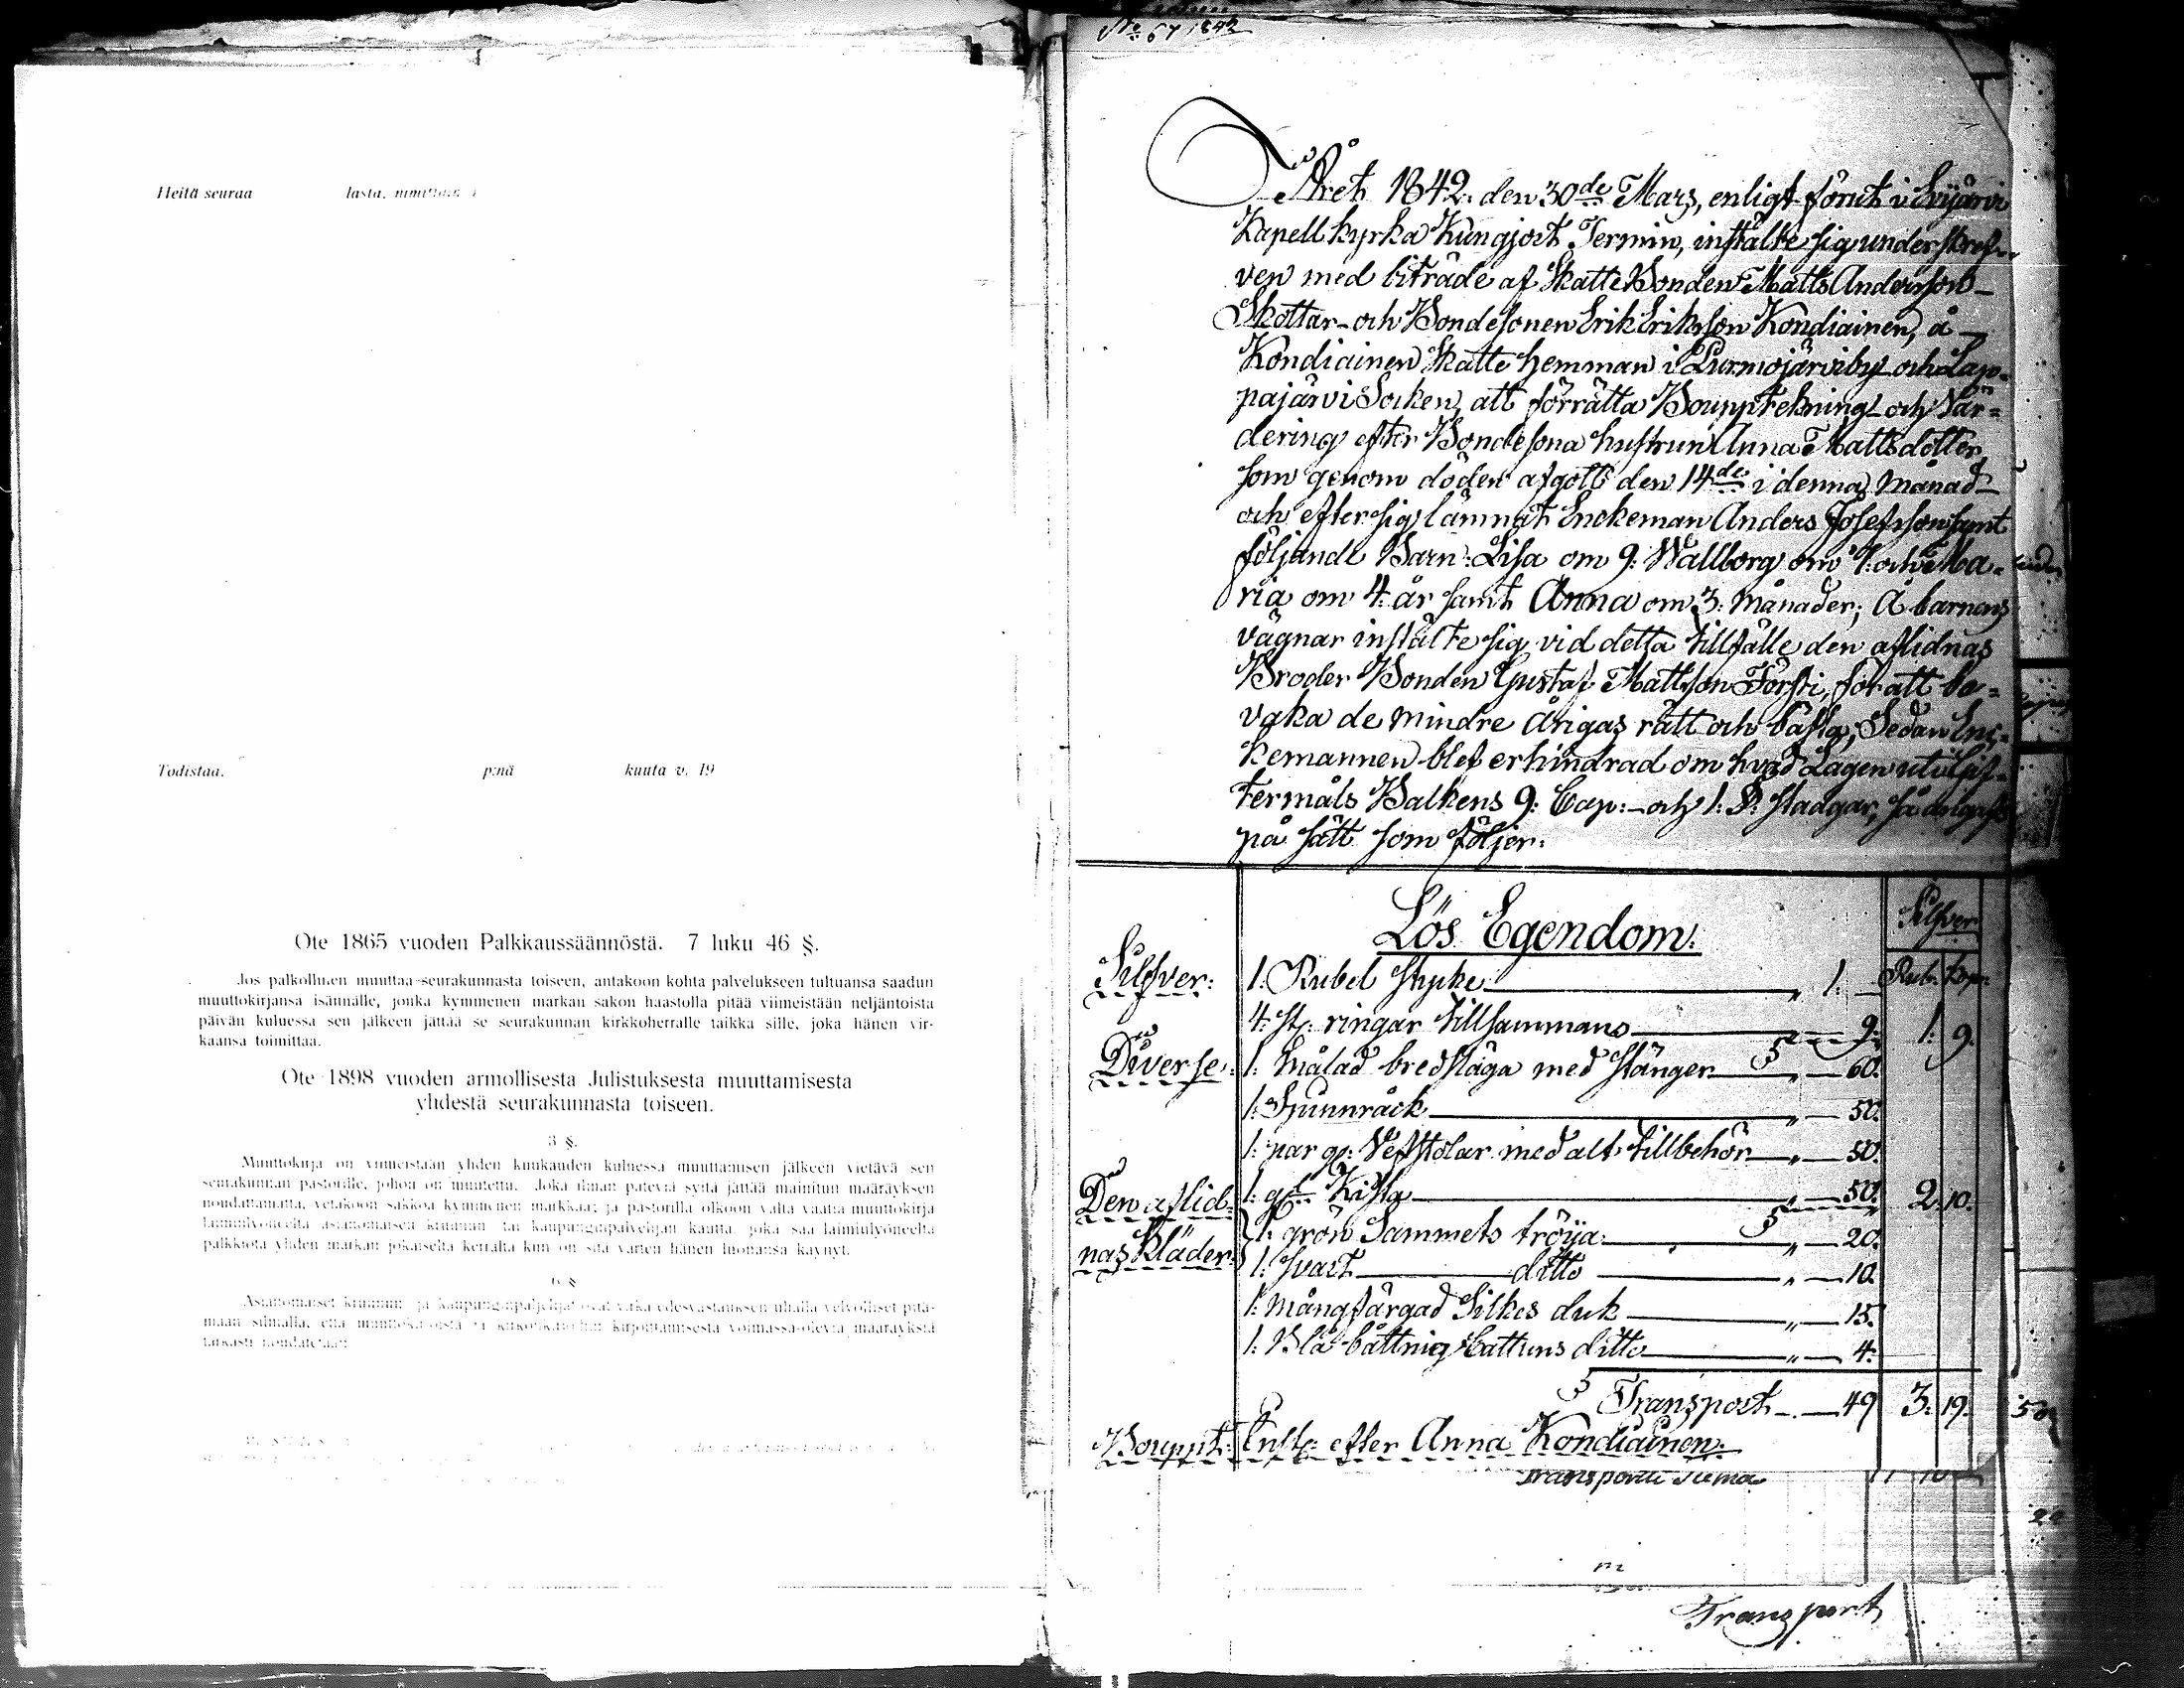 Heitä seuraa lasta, nimittäin
Todistaa. p:nä kuuta v. 19
Ote 1865 vuoden Palkkaussäännöstä. 7 luku 46 §.
Jos palkollinen muuttaa seurakunnasta toiseen, antakoon kohta palvelukseen tultuansa saadun
muuttokirjansa isännälle, jonka kymmenen markan sakon haastolla pitää viimeistään neljäntoista
päivän kuluessa sen jälkeen jättää se seurakunnan kirkkoherralle taikka sille, joka hänen vir-
kaansa toimittaa.
Ote 1898 vuoden armollisesta Julistuksesta muuttamisesta
yhdestä seurakunnasta toiseen.
3 §.
Muuttokirja on viimeistään yhden kuukauden kuluessa muuttamisen jälkeen vietävä sen
seurakunnan pastorille, johon on muutettu. Joka ilman pätevää syytä jättää mainitun määräyksen
noudattamatta, vetäköön sakkoa kymmenen markkaa; ja pastorilla olkoon valta vaatia muuttokirja
laiminlyöneeltä asianomaisen kruunun- tai kaupunginpalvelijan kautta, joka saa laiminlyöneeltä
palkkiota yhden markan jokaiselta kerralta kun on sitä varten hänen luonansa käynyt.
6 §
No 67 1842
Året 1842. den 30de Mars, enligt förut i Evijärvi
Kapell kyrka Kungjort Termin, instälte sig underskref-
ven med biträde af Skatte Bonden Matts Andersson
Skottar- och Bondesonen Erik Eriksson Kondiainen, å
Kondiainen Skatte hemman i Purmojärvi by och Lap-
pajärvi Socken, att förrätta Boupptekning och Vär=
dering efter Bondesona hustrun Anna Mattsdotter,
som genom döden afgått den 14de i denna Månad
och efter sig lämnat Enckeman Anders Josefsson samt
följande Barn: Lisa om 9: Wallborg om 7. och Ma=
ria om 4: år samt Anna om 3: Månader; Å barnens
vägnar instälte sig vid detta tillfälle den aflidnas
Broder Bonden Gustaf Mattsson Försti, för att be=
vaka de Mindre årigas rätt och bästa; Sedan Enc-
kemannen blef erhindrad om hvad Lagen uti Gif-
termåls Balkens 9: Cap:- och 1: §. stadgar, så
på sätt som följer.
Lös Egendom.
Silfver
Rub. Kop.
Silfver: 1: Rubel stycke „ 1:
4: st: ringar tillsammans 9. 1: 9.
Diverse: 1: Målad bredsläga med stänger „ 60.
1: Spunnråck „ 50.
1: par gl: Vefstolar med alt tillbehör „ 50.
1: gl: Kista „ 50. 2: 10.
Den aflid=
nas Kläder: 1: grön Sammets tröya „ 20.
1: svart ditto „ 10.
1: Mångfärgad Silkes duk „ 15.
1: Blå båttnig Cattuns ditto „ 4:
Transport 49 3: 19.
Bouppt: Inst: efter Anna Kondiainen.
Transport Suma
Transport